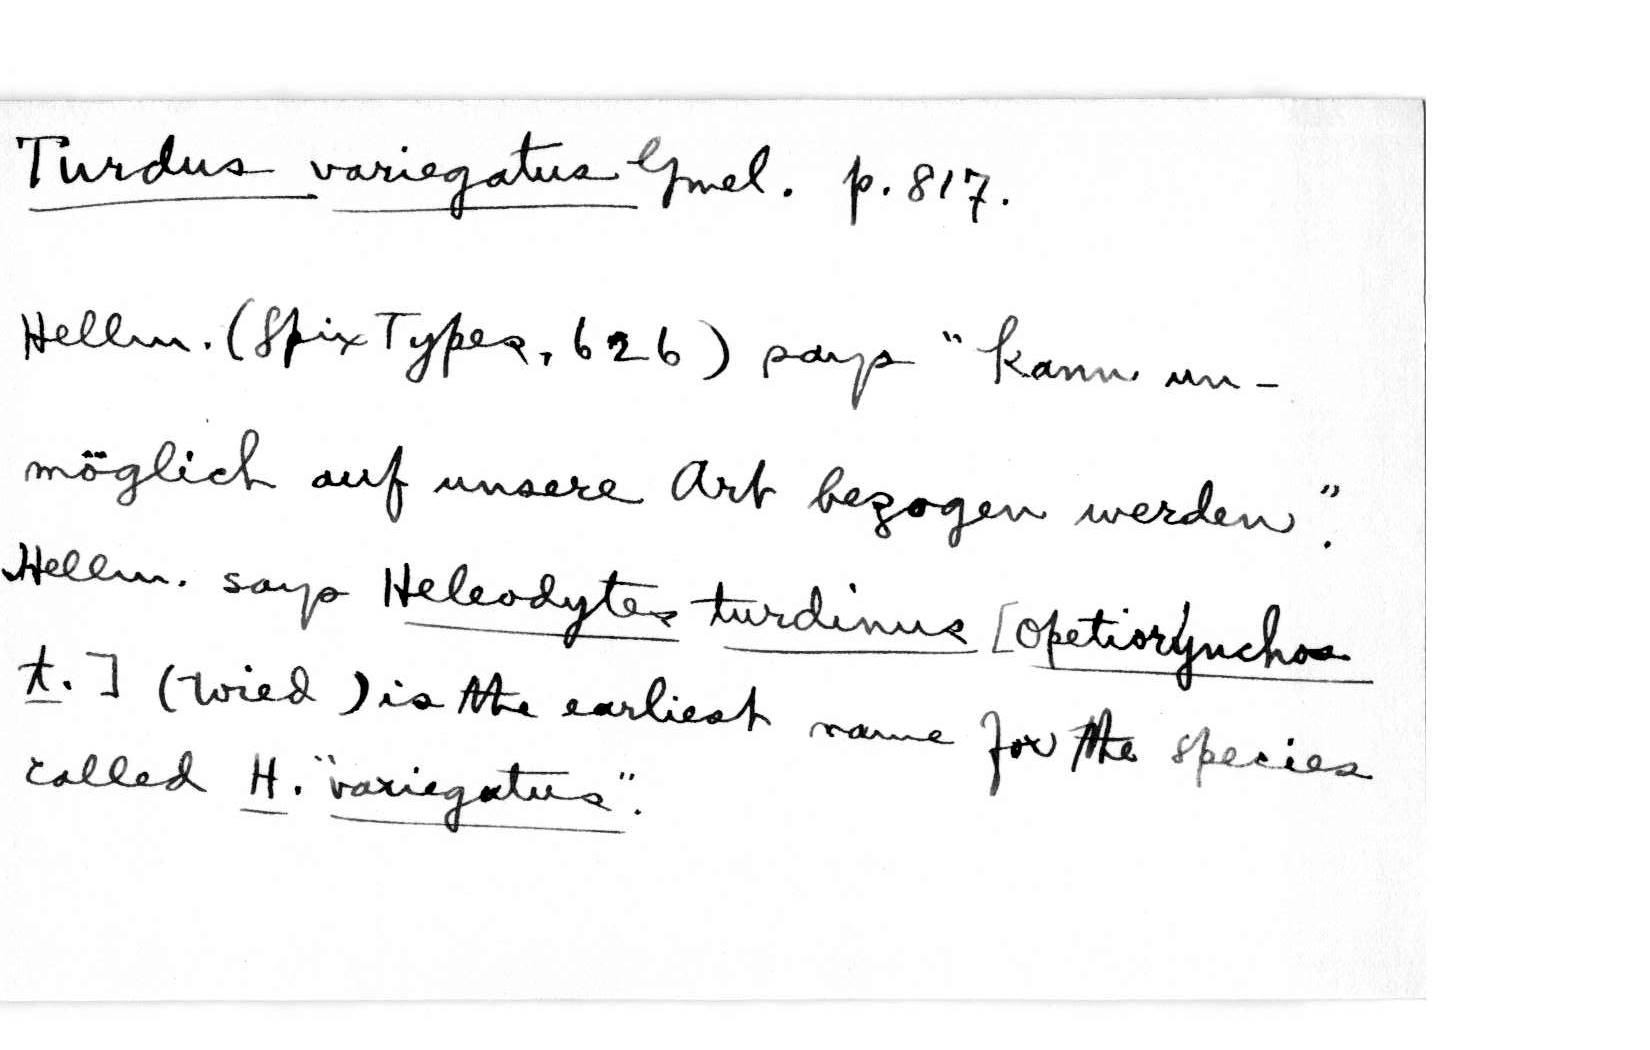 Turdus variegatus Gmel. p. 817.
Hellm. (Spix Types, 626) says "kann un-
möglich auf unsere Art bezogen werden".
Hellm. says Heleodytes turdinus [Opetiorynchos
t.] (Wied) is the earliest name for the species
called H. "variegatus".